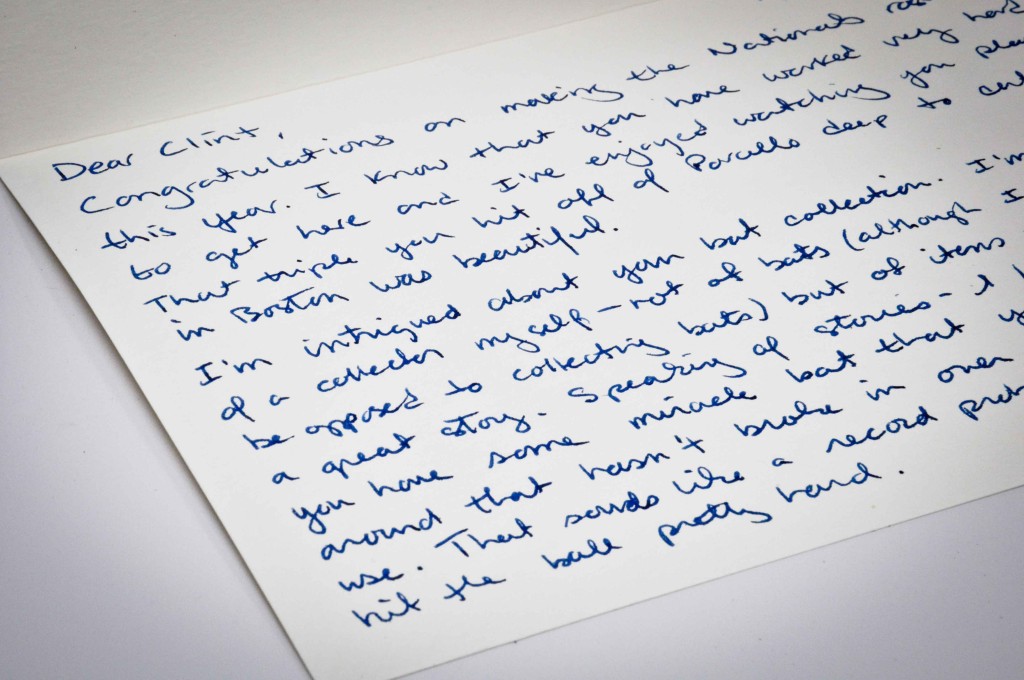 Dear Clint,
Congratulations on making the Nationals
this year. I know that you have worked very hard
to get here and I've enjoyed watching you play
That triple you hit off of Porcello deep to
in Boston was beautiful.
I'm intrigued about your bat collection. I'm
of a collector myself - not of bats (although I
be opposed to collecting bats) but of items
a great story. Speaking of stories - I
you have some miracle bat that
around that hasn't broke in over
use. That sounds like a record
hit the ball pretty hard.